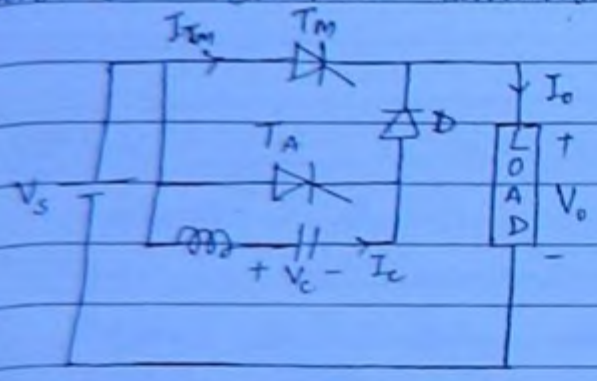 I_Tm T_M
I_o
D
T_A
LOAD
+
V_s
V_o
-
+ V_c - I_c